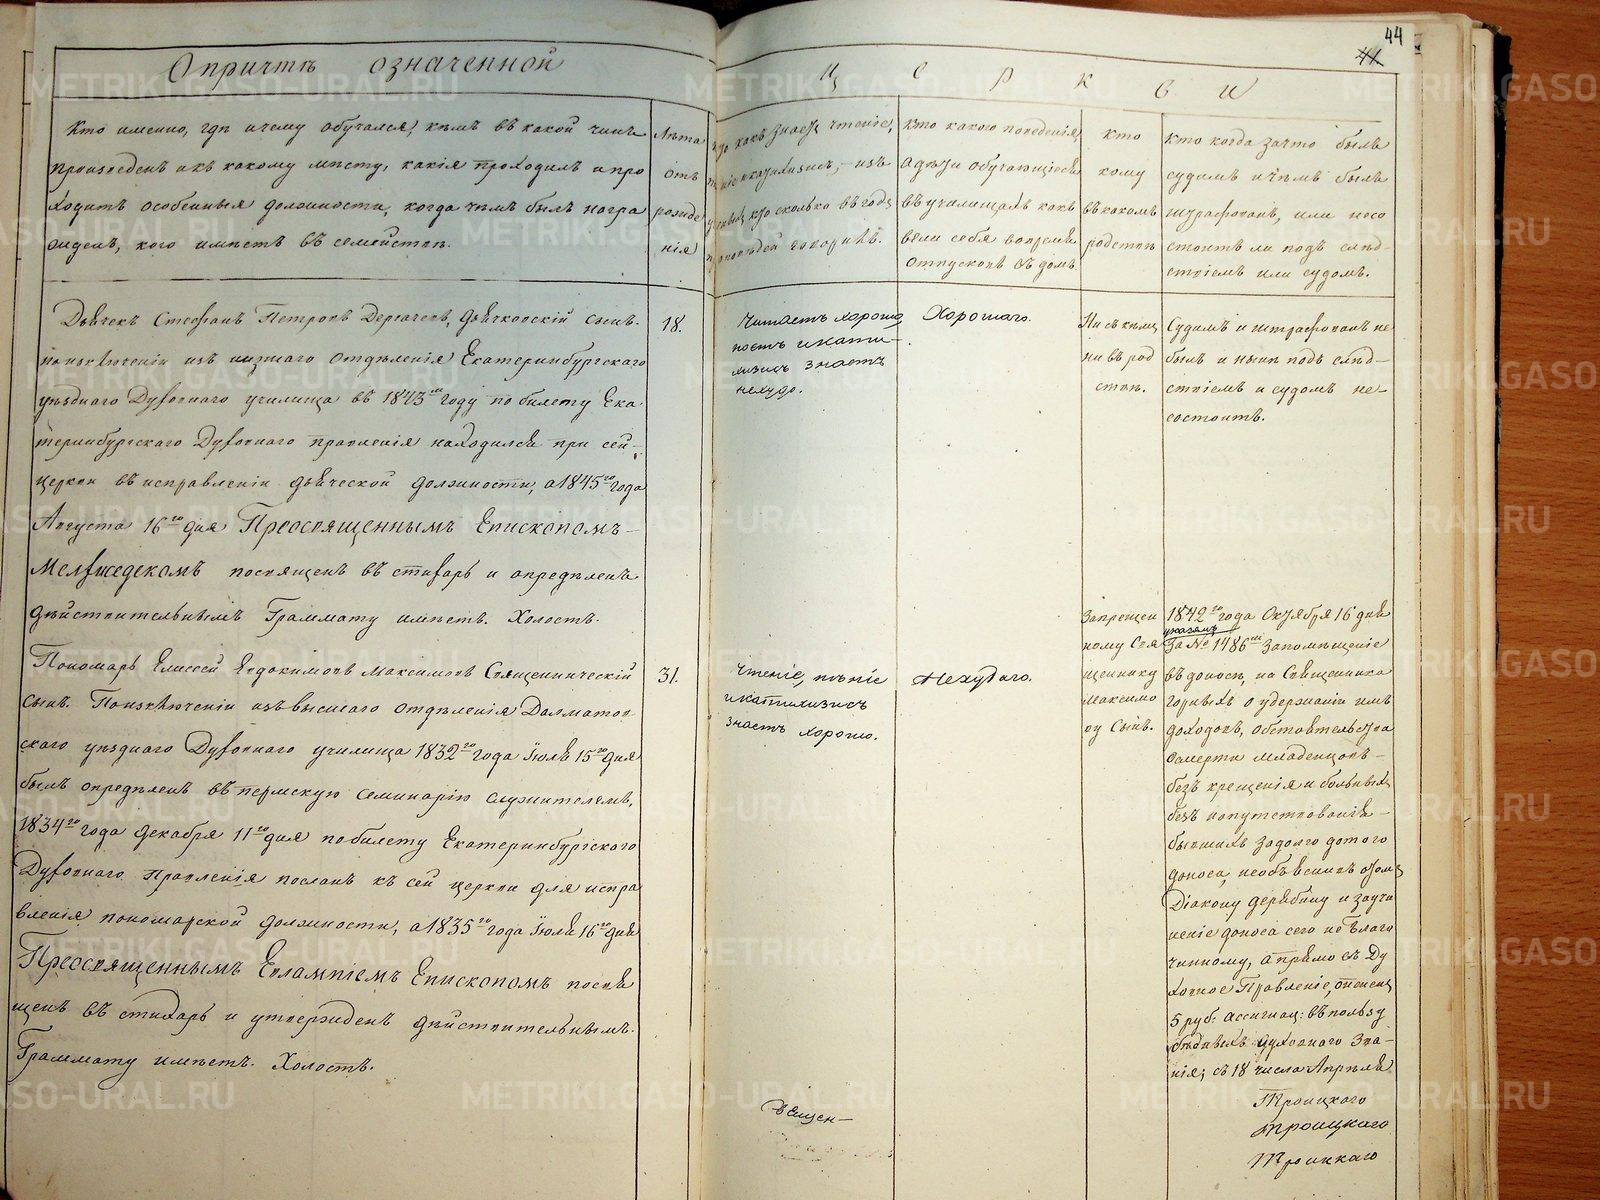 О причтѣ означенной
церкви
44
41
Кто именно, гдѣ и чему обучался, кѣмъ въ какой чинъ
произведенъ и къ какому мѣсту, какія проходилъ и про
ходитъ особенныя должности, когда чѣмъ былъ награ
жденъ, кого имѣетъ въ семействѣ.
Лѣта
отъ
рожде
нія
какъ знаетъ чтеніе,
катихизисъ, изъ
кто сколько въ годъ
проповѣдей говорилъ.
Кто какого поведенія,
а дѣти обучающіеся
въ училищахъ какъ
вели себя во время
отпусковъ въ домъ
Кто
кому
въ какомъ
родствѣ
Кто когда за что былъ
судимъ и чѣмъ былъ
штрафованъ, или не со
стоитъ ли подъ слѣд
ствіемъ или судомъ.
Дьячекъ Стефанъ Петровъ Дергачевъ, дьячковскій сынъ.
по исключеніи изъ низшаго отдѣленія Екатеринбургскаго
уѣзднаго Духовнаго училища въ 1843мъ году по билету Ека
теринбургскаго Духовнаго правленія находился при сей
церкви въ исправленіи дьяческой должности, а 1845го года
Августа 16го дня Преосвященнымъ Епископомъ
Мелхиседекомъ посвященъ въ стихарь и опредѣленъ
дѣйствительнымъ Граммату имѣетъ. Холостъ.
18.
Читаетъ хорошо,
ноетъ и кати-
хизисъ знаетъ
нехудо.
Хорошаго.
Ни съ кѣмъ
ни въ род
ствѣ.
Судимъ и штрафованъ не
былъ и нынѣ подъ слѣд-
ствіемъ и судомъ не-
состоитъ.
Пономарь Елисей Евдокимовъ Максимовъ Священническій
сынъ. По исключеніи изъ высшаго отдѣленія Далматов-
скаго уѣзднаго Духовнаго училища 1832го года Іюля 15го дня
былъ опредѣленъ въ пермскую семинарію служителемъ,
1834го года Декабря 11го дня по билету Екатеринбургскаго
Духовнаго Правленія посланъ къ сей церкви для испра
вленія пономарской должности, а 1835го года Іюля 16го дня
Преосвященнымъ Евлампіемъ Епископомъ посвя
щенъ въ стихарь и утвержденъ дѣйствительнымъ.
Граммату имѣетъ. Холостъ.
31.
Чтеніе, пѣніе
и катихизисъ
знаетъ хорошо.
Нехудаго.
Запрещен
ному Свя
щеннику
Максимо
ву Сынъ.
1842го года Октября 16 дня
указомъ
за № 1486мъ за помѣщеніе
въ доносѣ, на Священника
о удержаніи имъ
доходовъ, обстоятельства
смерти младенцовъ
безъ крещенія и больныхъ
безъ напутствованія
бывшихъ задолго до того
доноса, необъявивъ о томъ
Діакону Дерябину и за учи
неніе доноса сего не Благо
чинному, а прямо въ Ду
ховное Правленіе,
5 руб: ассигнац: въ пользу
бѣдныхъ духовнаго Зва-
нія; съ 18 числа Апрѣля
Троицкаго
Троицкаго
Троицкаго
METRIKI.GASO-URAL.RU